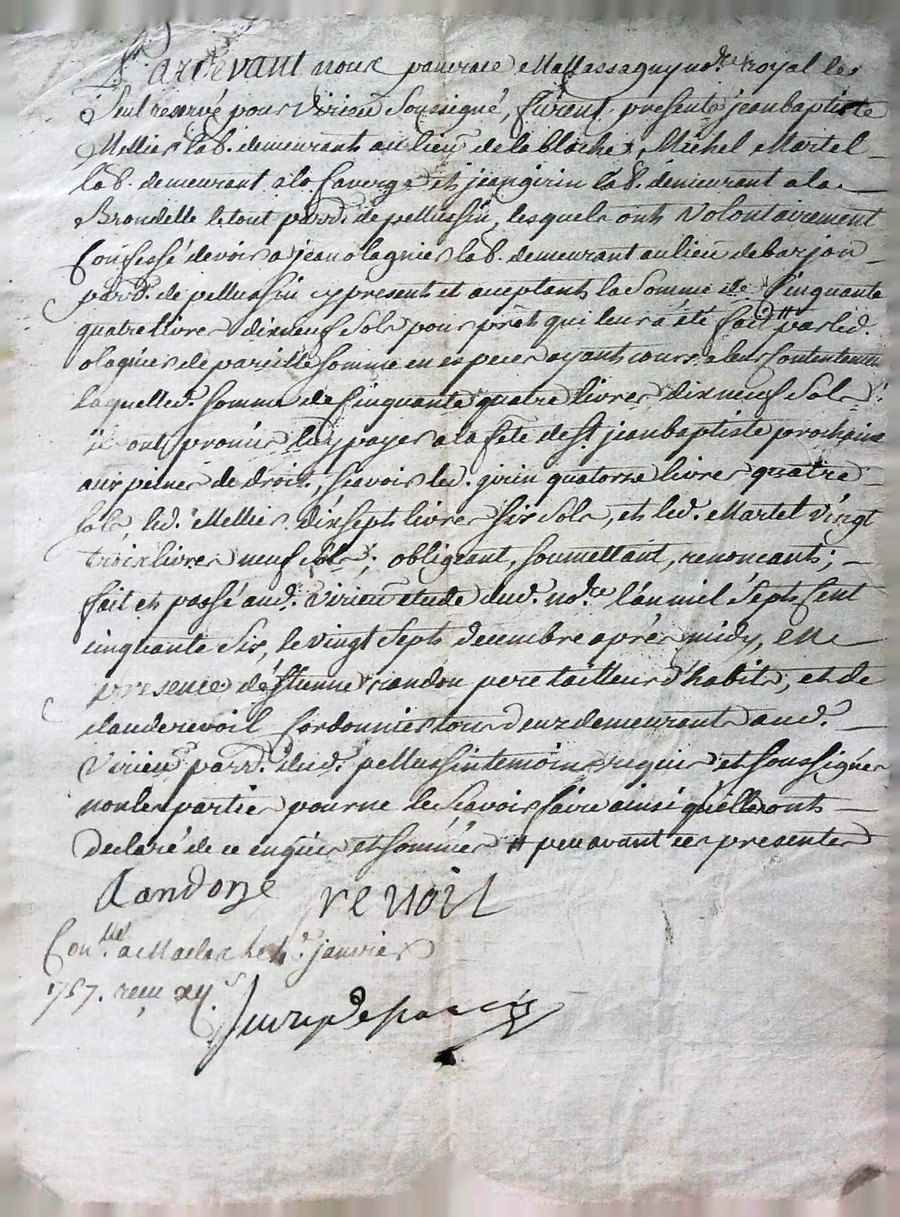 Pardevant nous pancrace Mallassagny nore. royal le
Seul reservé pour Virieu Soussigné, furent presents jean baptiste
Mellier lab. demeurant au lieu de la blache, Michel Martel
lab. demeurant a la Caverge et jean girin lab. demeurant a la
Brondelle le tout parr. de pellussin, lesquels onts Volontairement
Confessé devoir a jean olagnier lab. demeurant au lieu de barjon
parr. de pellussin cy present et aceptants la Somme de Cinquante
quatre livres dixneuf Sols pour prêt qui leur a été fait # par led.
olagnier de pareille Somme en especes ayant cours a leur Contentement
Laquelle d. Somme de Cinquante quatre livres dixneuf Sols
ils onts promis luy payer a la fête de St. jean baptiste prochaine
aux peines de droit, Scavoir led. girin quatorze livres quatre
Sols, led. Mellier dixsept livres Six Sols, et led. Martel vingt
troix livres neuf Sols; obligeant, Soumettant, renoncants;
fait et passé aud. Virieu étude dud. nore. l'an mil Sept Cent
cinquante Six, le vingt Sept decembre aprés midy, en
presence d'éstienne riandon pere tailleur d'habits, et de
claude revoil Cordonnier tous deux demeurant aud.
Virieu parr. dud. pellussin temoins requis et Soussignés
non les parties pour ne le Scavoir faire ainsi qu'elle onts
declaré de ce enquis et Sommés # peu avant ces presentes
Riandone revoil
Conllé. a Maclas le janvier
1757. reçu xij s